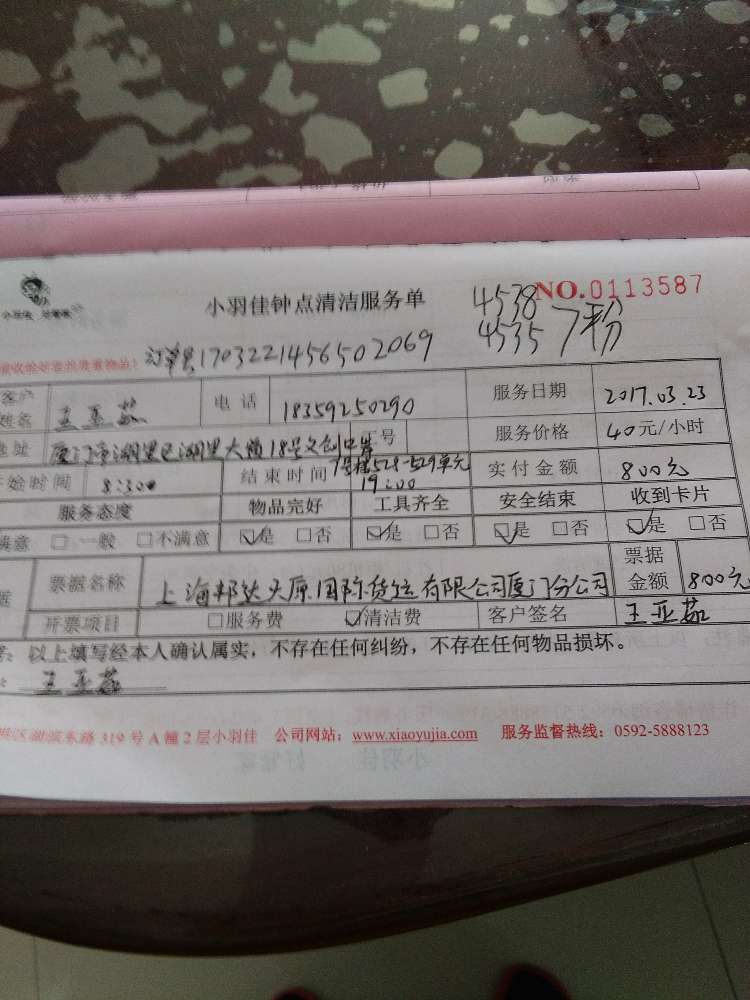 小羽佳
小羽佳钟点清洁服务单
4538
4535 7粉
NO.0113587
订单号1703221456502069
客户
姓名 王亚茹 电话 18359250290 服务日期 2017.03.23
地址 厦门市湖里区湖里大道18号文创中 工号 服务价格 40元/小时
1号楼528-529单元
开始时间 8:30 结束时间 19:00 实付金额 800元
服务态度 物品完好 工具齐全 安全结束 收到卡片
满意 □一般 □不满意 ☑是 □否 ☑是 □否 ☑是 □否 ☑是 □否
票据名称 上海邦达天原国际货运有限公司厦门分公司 票据
金额 800元
开票项目 □服务费 ☑清洁费 客户签名 王亚茹
以上填写经本人确认属实，不存在任何纠纷，不存在任何物品损坏。
王亚茹
区湖滨东路319号A幢2层小羽佳 公司网站：www.xiaoyujia.com 服务监督热线：0592-5888123